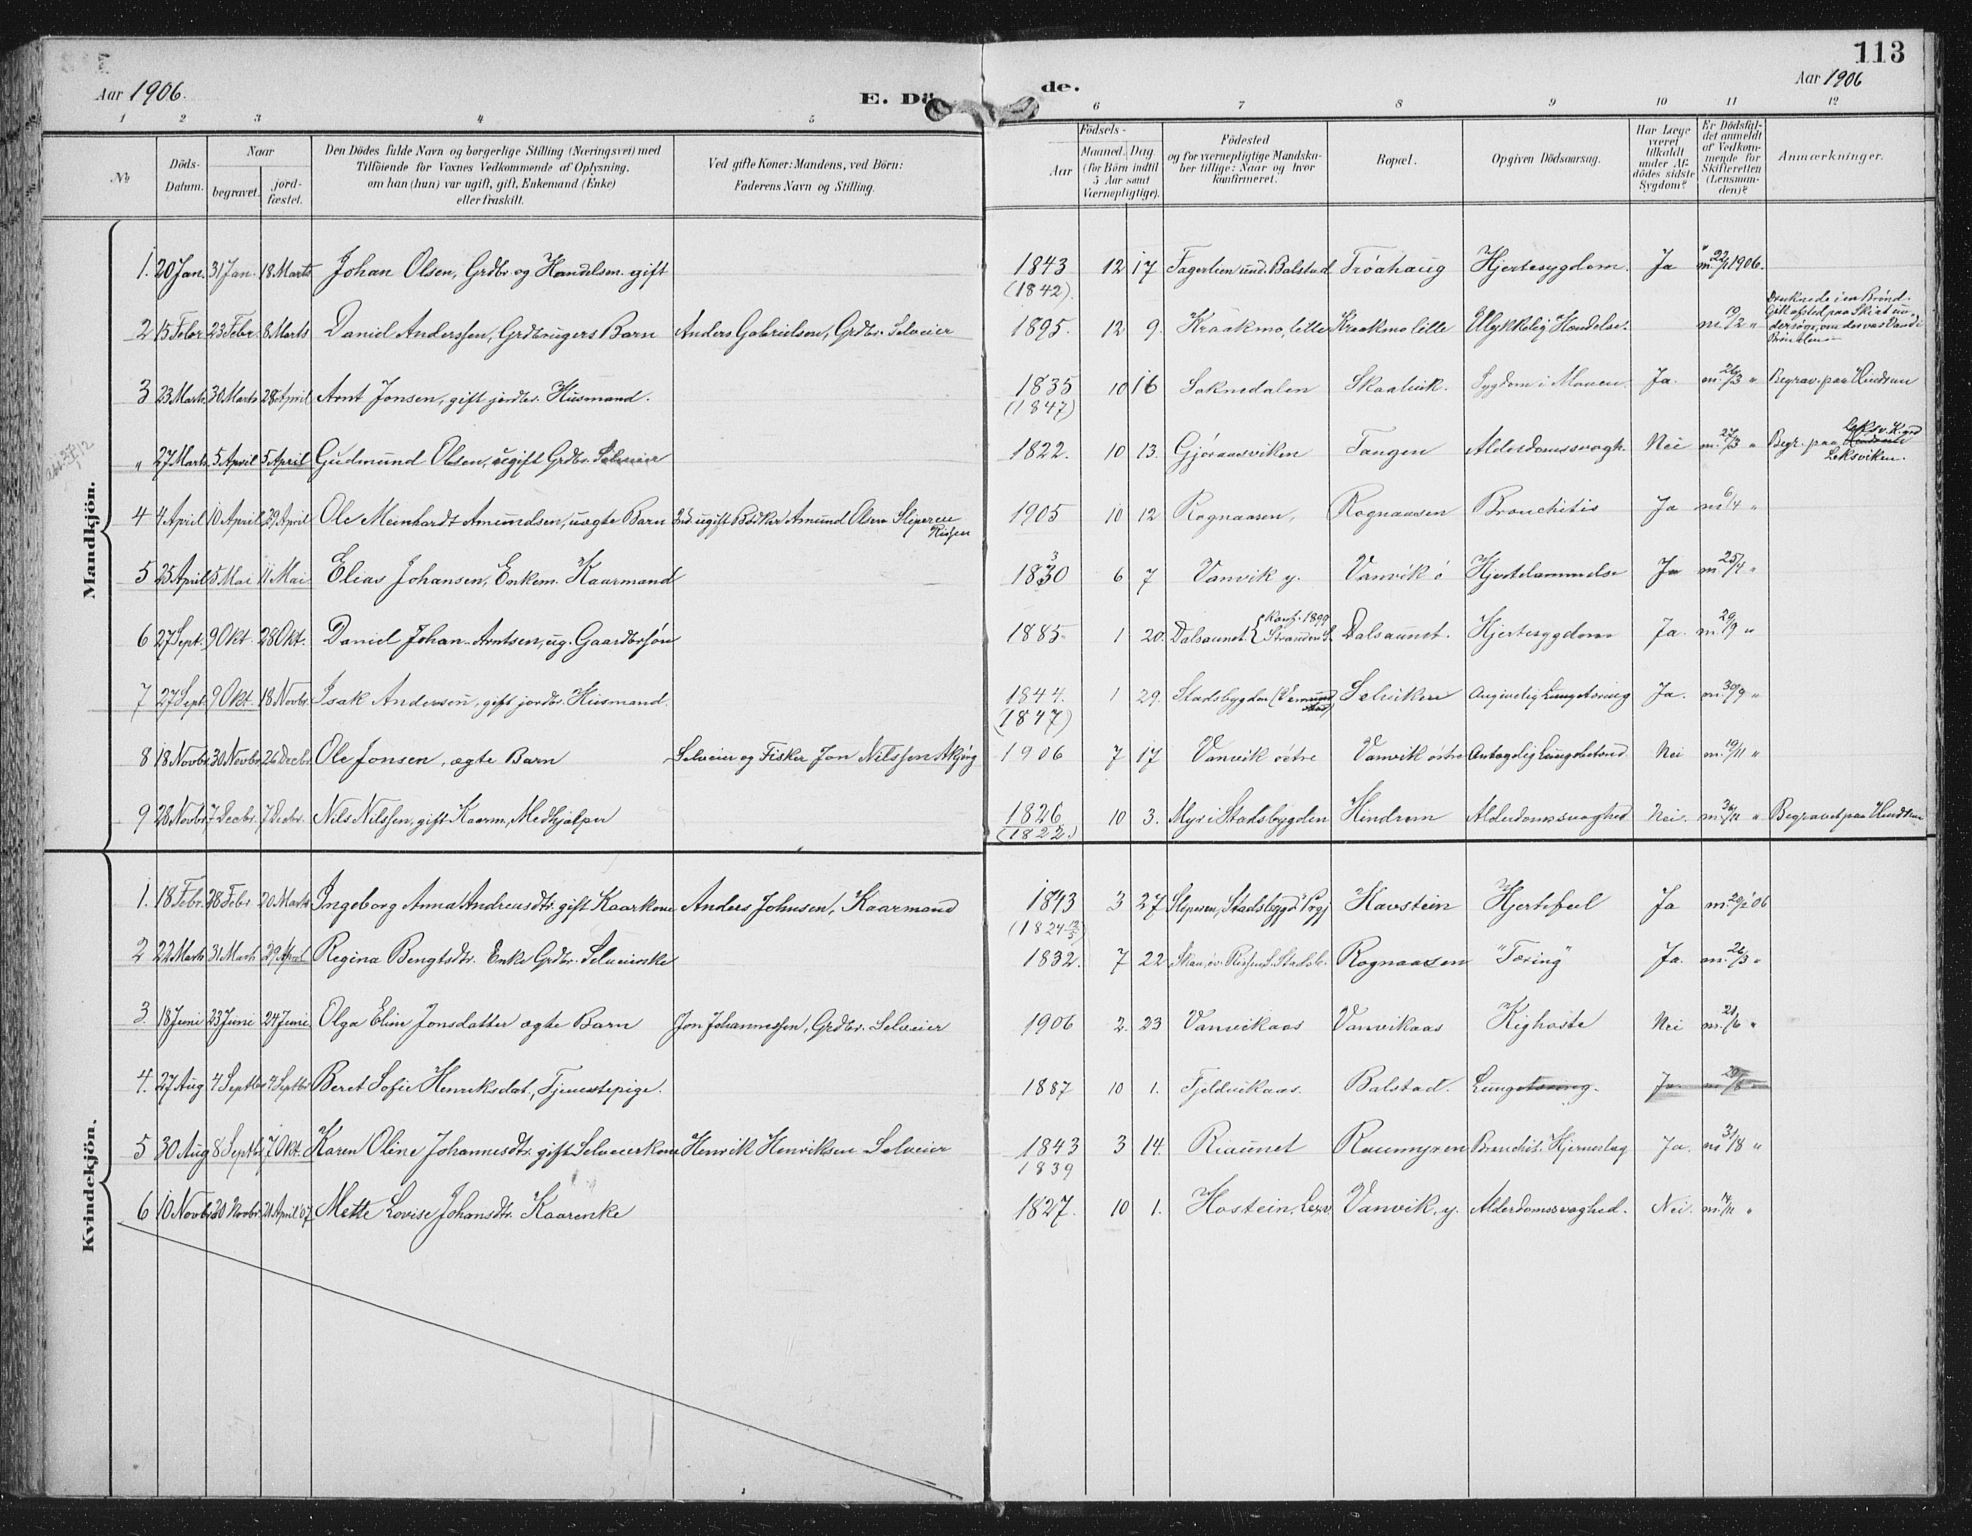 113
Aar 1906.
E. Dö
de.
Aar 1906
1 2 3 4 5
6 7 8 9 10 11 12
No
Döds-Datum.
Naar
begravet.
jord-fæstet.
Den Dödes fulde Navn og borgerlige Stilling (Næringsvei) med
Tilföiende for Voxnes Vedkommende af Oplysning,
om han (hun) var ugift, gift, Enkemand (Enke)
eller fraskilt.
Ved gifte Koner: Mandens, ved Börn:
Faderens Navn og Stilling.
Födsels-
Aar
Maaned. Dag
(for Börn indtil
5 Aar samt
Værnepligtige).
Födested
og for værnepligtige Mandska-
ber tillige: Naar og hvor
konfirmeret.
Bopæl.
Opgiven Dödsaarsag.
Har Læge
været
tilkaldt
under Af-
dödes sidste
Sygdom?
Er Dödsfal-
det anmeldt
af Vedkom-
mende for
Skifteretten
(Lensman-
den)?
Anmærkninger.
Mandkjön.
1. 20 Jan. 31 Jan. 18 Marts Johan Olsen, Grdbr. og Handelsm. gift 1843 12 17 Fagerlien und. Balstad Trøahaug Hjertesygdom. Ja m. 22/1 1906.
(1842).
2 15 Febr 23 Febr. 8 Marts Daniel Anderssen, Grdbrugers Barn Anders Gabrielsen, Grdbr. Selveier 1895. 12 9. Kraakmo, lille Kraakmo lille Ulykkelig Hændelse. m. 19/2 "
Druknede i en Brønd.
3 23 Marts 30 Marts 28 April Arnt Jonsen, gift jordbr. Husmand. 1835 10 16 Soknedalen Skaalvik. Sygdom i Maven. Ja. m. 26/3 " Begrav. paa Hindrem
(1847)
" 27 Marts 5 April 5 April Gudmund Olsen, ugift Grdbr. Selveier 1822. 10 13. Gjøraasviken Tangen Alderdomssvagh. Nei m. 27/3 " Begr. paa Hindrem
Leksviken.
4 4 April 10 April 29 April Ole Meinhardt Amundsen, uægte Barn ugift Bødker Amund Olsen Sliperen
Rissen
1905 10 12 Rognaasen, Rognaasen Bronchitis Ja m. 6/4 "
5 25 April 5 Mai 11 Mai Elias Johansen, Enkem. Kaarmand 1830 6 7 Vanvik y. Vanvik ø Hjertelammelse Ja m. 25/4 "
3
6 27 Sept. 9 Okt. 28 Okt. Daniel Johan Arntsen, ug. Gaardbrsøn 1885. 1 20. Dalsaunet Dalsaunet. Hjertesygdom Ja. m. 29/9 "
7 27 Sept 9 Okt. 18 Novbr. Isak Andersen, gift jordbr. Husmand. 1844. 1 29. Stadsbygden Selviken Angivelig Lungetæring Ja. m. 30/9 "
(1847)
8 18 Novbr 30 Novbr 26 Decbr Ole Jonsen, ægte Barn Selveier og Fisker Jon Nilssen 1906 7 17 Vanvik østre Vanvik østre Antagelig Lungebetænd. Nei m. 19/11 "
9 28 Novbr 7 Decbr. 7 Decbr. Nils Nilssen, gift Kaarm, Medhjælper 1826 10 3. Myr i Stadsbygden Hindrem Alderdomssvaghed Nei. m. 30/11 " Begravet paa Hindrem
(1822)
Kvindekjön.
1. 18 Febr. 28 Febr 20 Marts Ingeborg Anna Andreasdtr. gift Kaarkone Anders Johnsen, Kaarmand 1843 3 27 Sliperen, Stadsbygd Prgj Havstein Hjertefeil Ja m. 20/2 06
2 22 Marts 31 Marts 29 April Regina Bengtsdtr. Enke Grdbr. Selveierske 1832. 7 22 Rognaasen "Tæring" Ja. m. 26/3 "
3. 18 Juni 23 Juni 24 Juni Olga Elin Jonsdatter ægte Barn Jon Johannessen, Grdbr. Selveier 1906 2. 23 Vanvikaas Vanvikaas Kighoste Nei m. 21/6 "
4. 27 Aug 4 Septbr 4 Septbr Beret Sofie Henriksdat., Tjenestepige. 1887 10 1. Fjeldvikaas. Balstad. Lungetæring. Ja m. 29/8 "
5 30 Aug 8 Septbr 7 Okt. Karen Oline Johannesdtr. gift Selveierkone Henrik Henriksen Selveier 1843 3 14. Riaunet Raumyren Bronchit. Hjerneslag Ja. m. 31/8 "
1839
6 10 Novbr. 20 Novbr 21 April 07 Mette Lovise Johansdtr. Kaarenke 1827. 10 1. Hostein, Lexv Vanvik, y. Alderdomssvaghed. Nei. m. 14/11 "